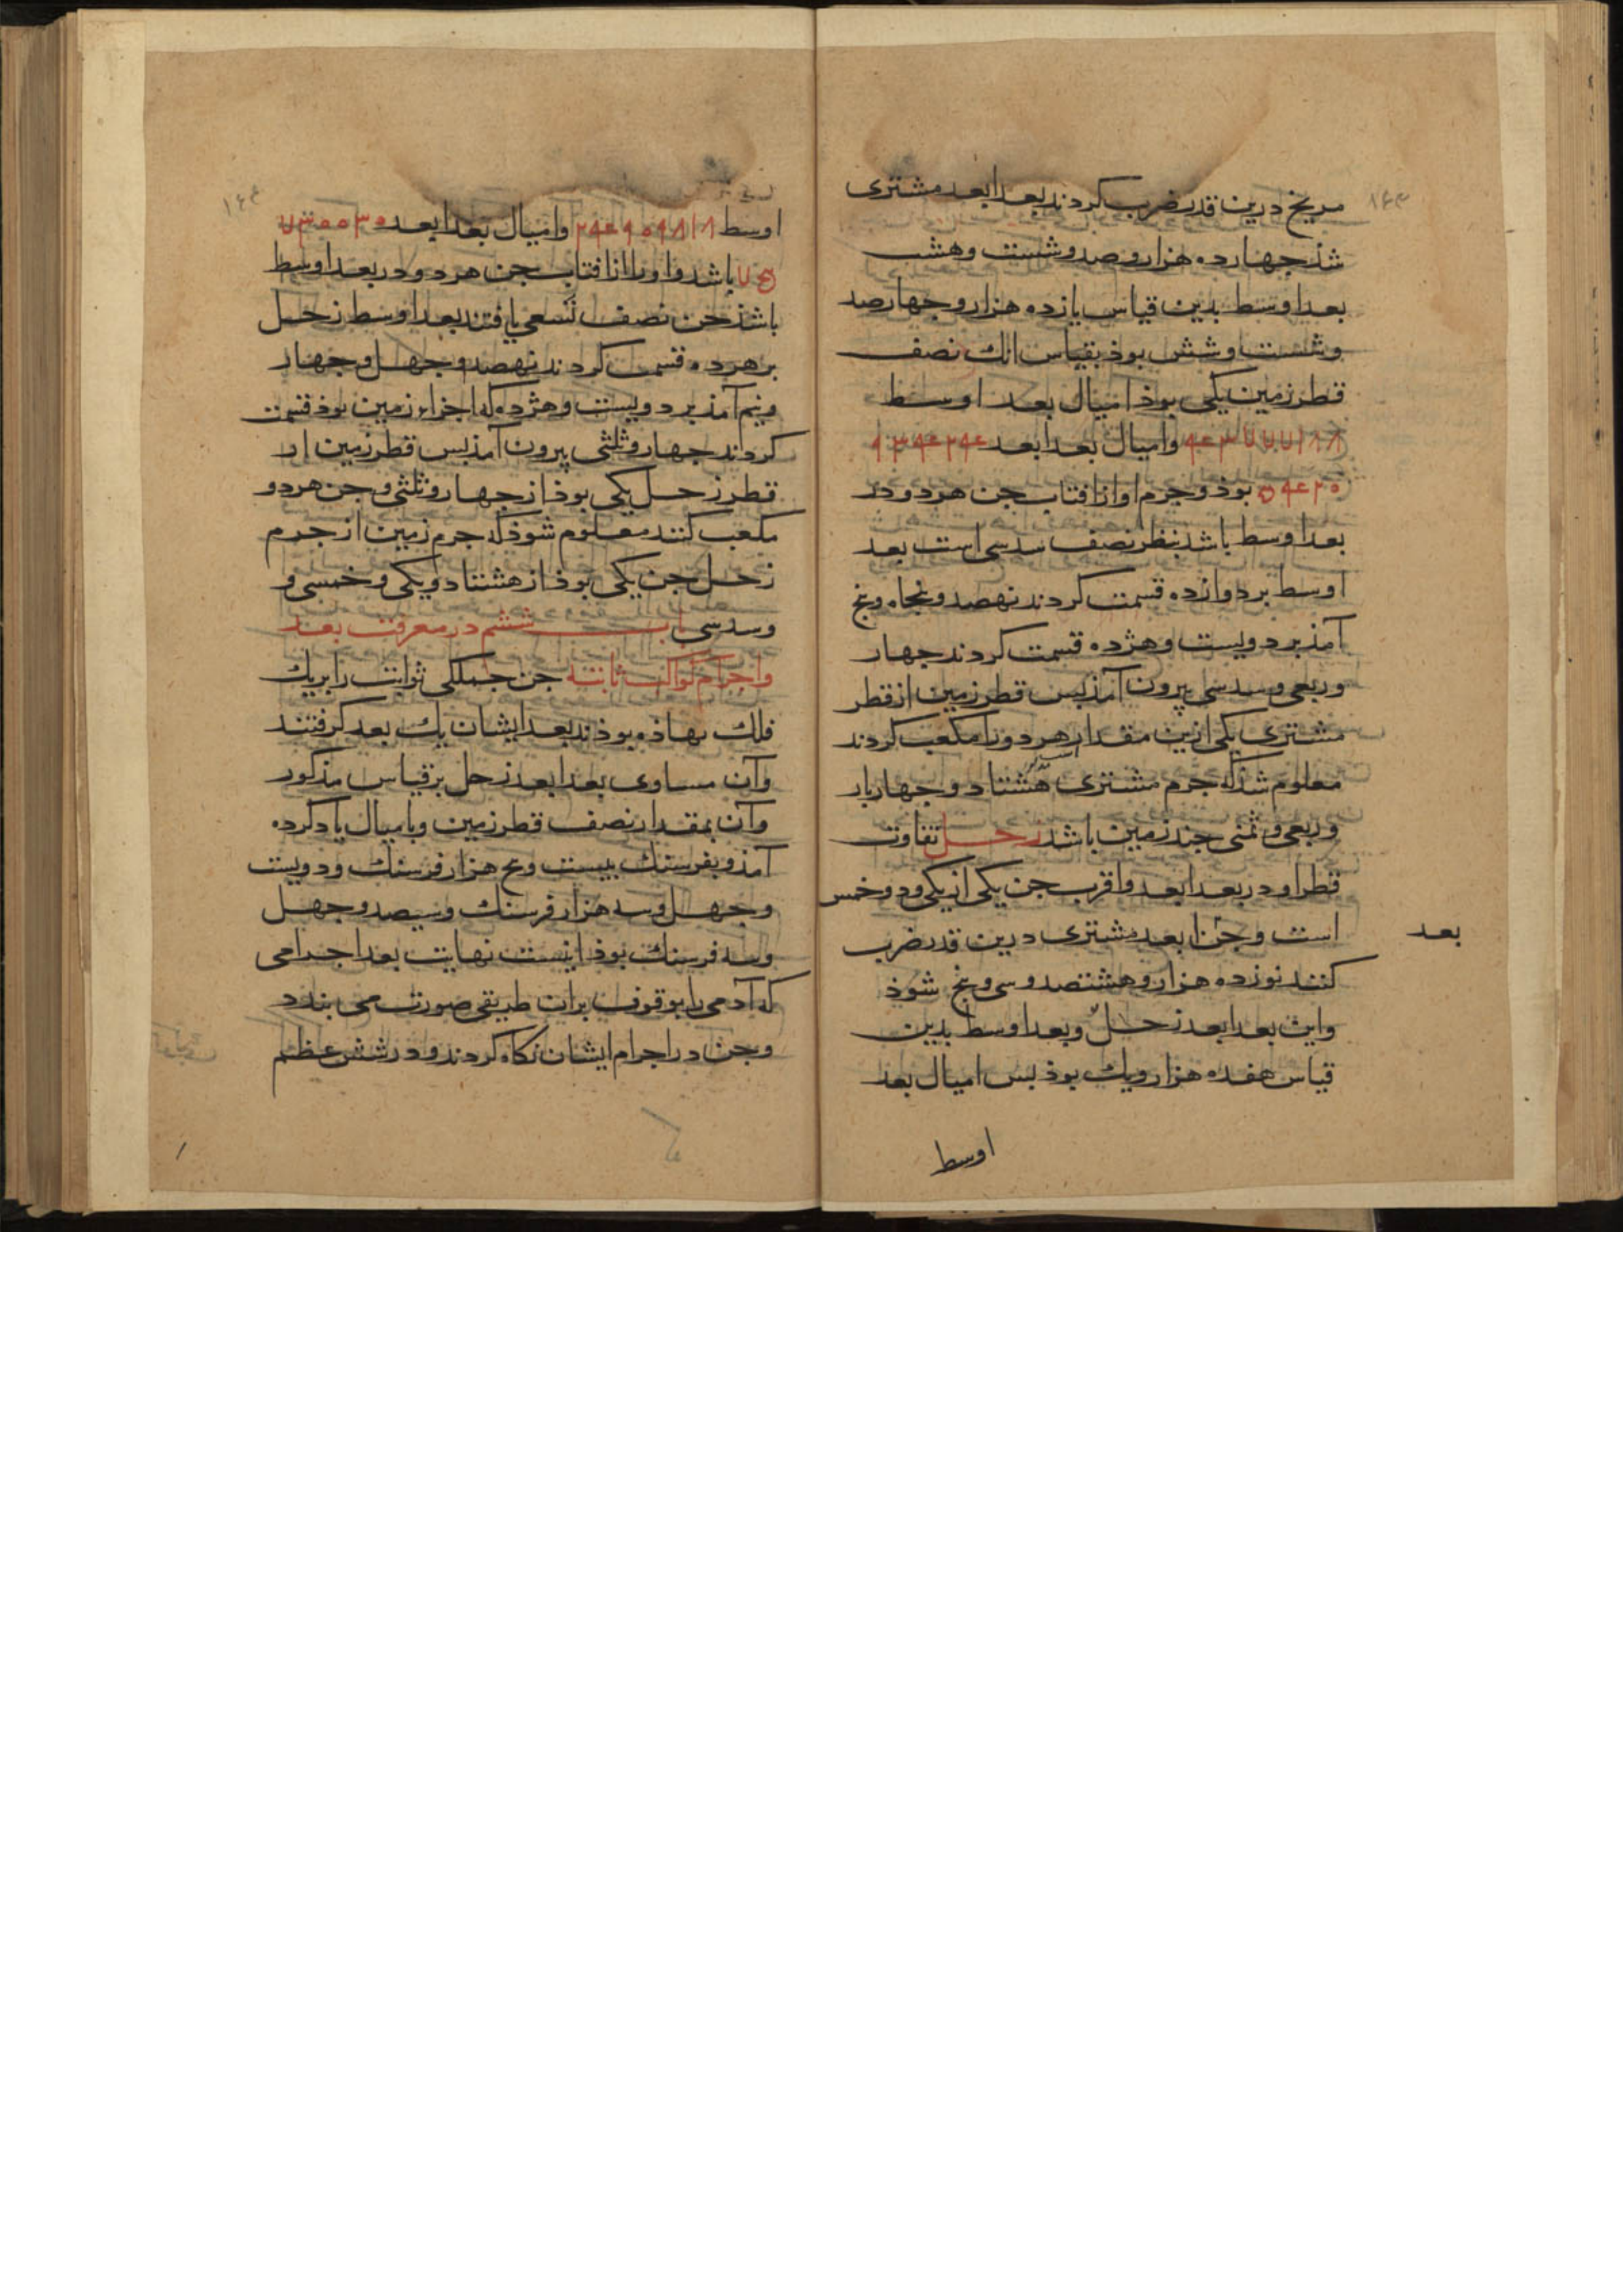 ۱۶۳
مریخ درین قدر ضرب کردند بعد ابعد مشتری
شذ جهارده هزار و صد و شست و هشت
بعد اوسط بدین قیاس یازده هزار و جهارصد
و شست و شش بوذ بقیاس انك نصف
قطر زمین یکی بوذ امیال بعد اوسط
وامیال بعد ابعد
بوذ و جرم او از افتاب جن هر دو در
بعد اوسط باشد بنظر نصف سدسی است بعد
اوسط بر دوازده قسمت کردند نهصد و پنجاه و پنج
آمذ بر دویست و هژده قسمت کردند جهار
و ربعی و سدسی بیرون آمذ بس قطر زمین از قطر
مشتری یکی ازین مقدار هر دو را مکعب کردند
معلوم شذ که جرم مشتری هشتاد و جهار بار
و ربعی و ثمنی جند زمین باشد زحل تفاوت
قطر او در بعد ابعد و اقرب جن یکی از یکی و دو خمس
است و جن ابعد مشتری درین قدر ضرب
بعد
کنند نوزده هزار و هشتصد و سی و پنج شوذ
واین بعد ابعد زحل و بعد اوسط بدین
قیاس هفده هزار و یك بوذ بس امیال بعد
اوسط
۱۶۴
اوسط وامیال بعد ابعد
باشد و او را از افتاب جن هر دو در بعد اوسط
باشذ جن نصف تسعی یافتند بعد اوسط زحل
بر هژده قسمت کردند نهصد و جهل و جهار
و نیم آمذ بر دویست و هژده که اجزاء زمین بوذ قسمت
کردند جهار و ثلثی بیرون آمذ بس قطر زمین از
قطر زحل یکی بوذ از جهار و ثلثی و جن هر دو
مکعب کنند معلوم شوذ که جرم زمین از جرم
زحل جن یکی بوذ از هشتاد و یکی و خمسی و
وسدسی باب ششم در معرفت بعد
واجرام کواکب ثابته جن جملکی ثوابت را بریك
فلك نهاذه بوذند بعد ایشان یك بعد کرفتند
وآن مساوی بعد ابعد زحل بر قیاس مذکور
وآن بمقدار نصف قطر زمین و بامیال یاد کرده
آمذ و بفرسنك بیست و پنج هزار فرسنك و دویست
و جهل و سه هزار فرسنك و سیصد و جهل
وسه فرسنك بوذ اینست نهایت بعد اجرامی
که آدمی را بوقوف بران طریقی صورت می بندد
وجن در اجرام ایشان نکاه کردند و در شش عظم